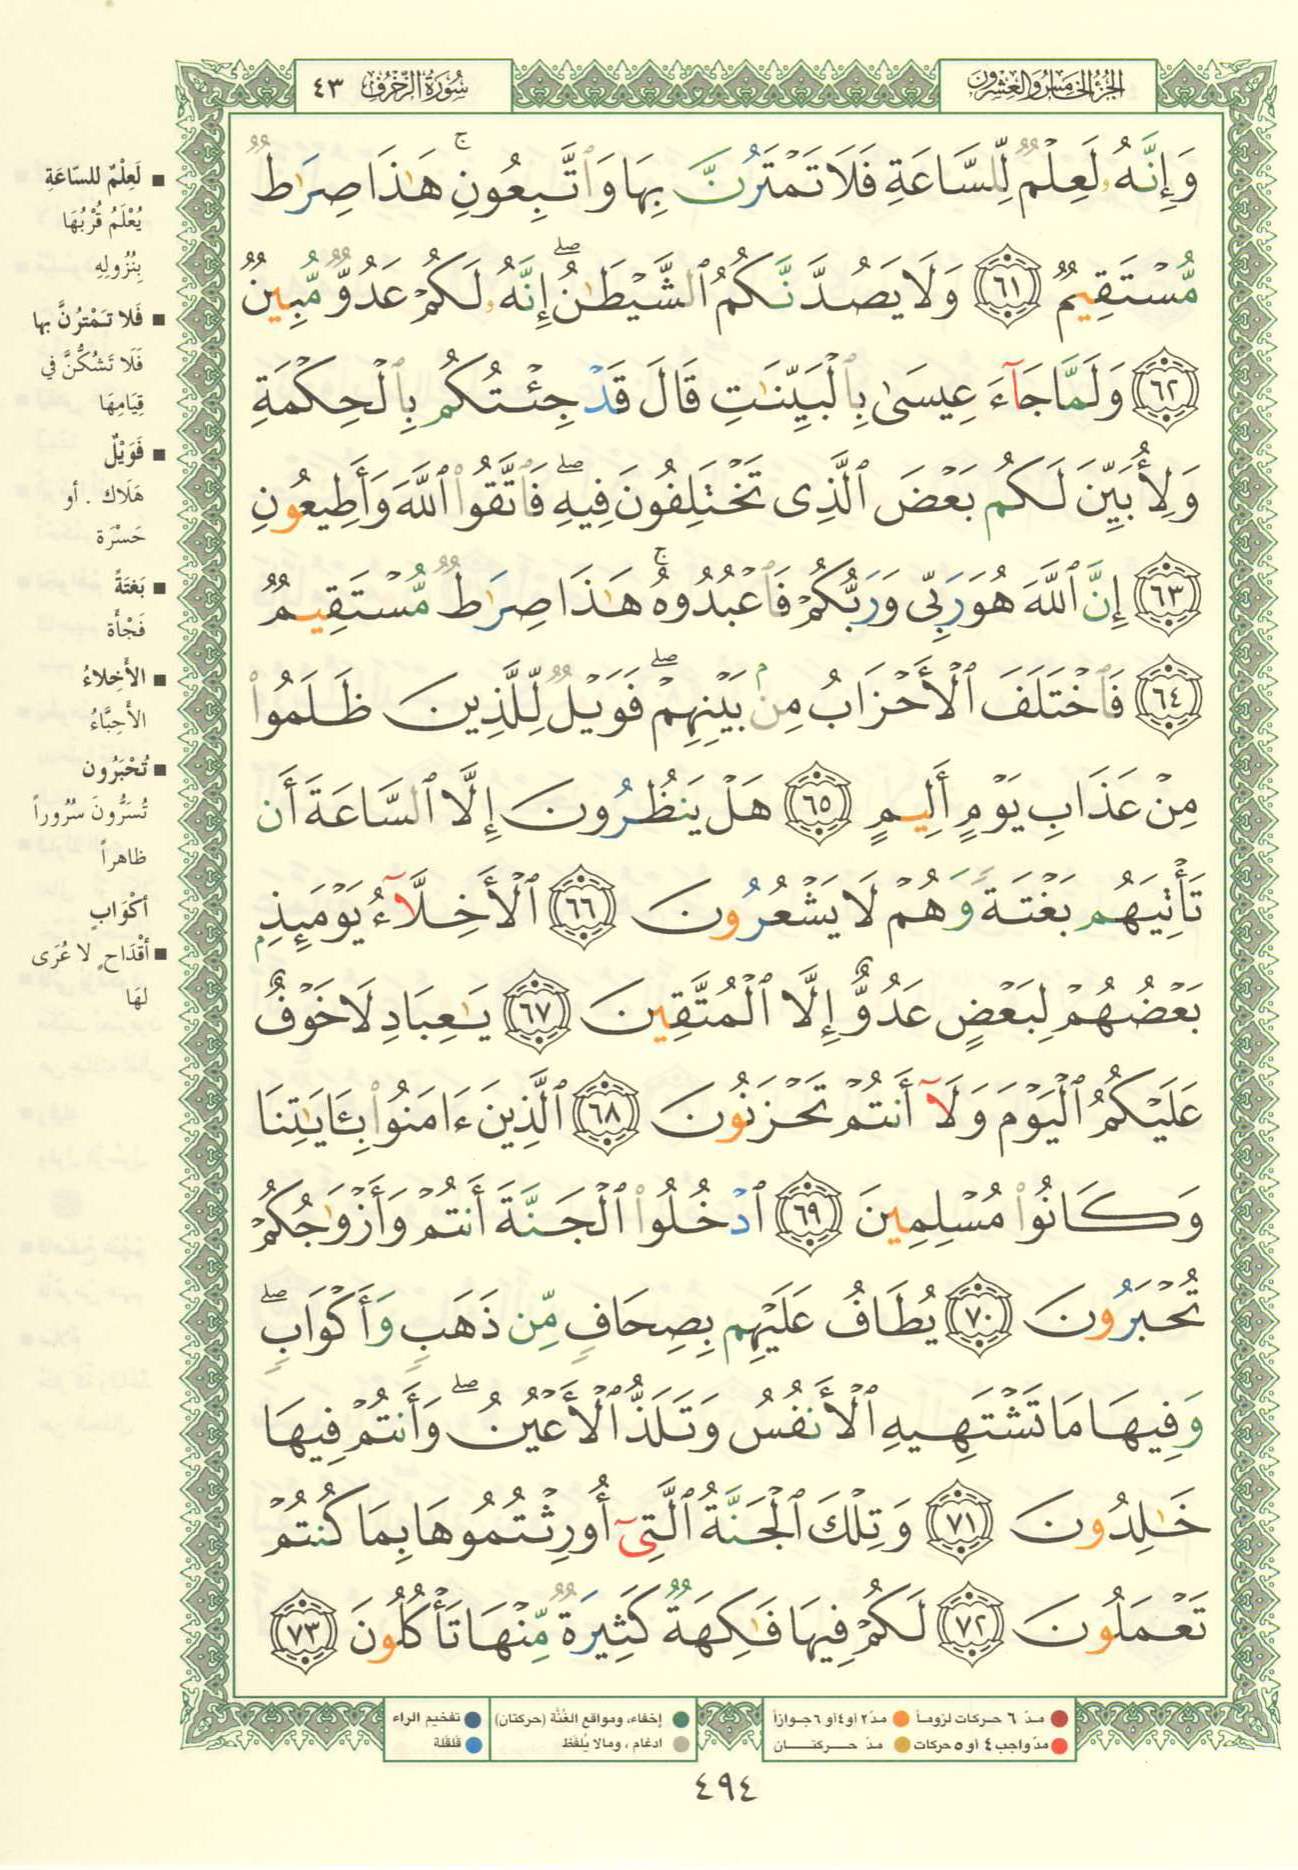 سُورَةُ الزُّخْرُفِ ٤٣
الجُزْءُ الخَامِسُ وَالعِشْرُونَ
وَإِنَّهُۥ لَعِلْمٌ لِّلسَّاعَةِ فَلَا تَمْتَرُنَّ بِهَا وَٱتَّبِعُونِ ۚ هَٰذَا صِرَٰطٌ
مُّسْتَقِيمٌ ٦١ وَلَا يَصُدَّنَّكُمُ ٱلشَّيْطَٰنُ ۖ إِنَّهُۥ لَكُمْ عَدُوٌّ مُّبِينٌ
٦٢ وَلَمَّا جَآءَ عِيسَىٰ بِٱلْبَيِّنَٰتِ قَالَ قَدْ جِئْتُكُم بِٱلْحِكْمَةِ
وَلِأُبَيِّنَ لَكُم بَعْضَ ٱلَّذِى تَخْتَلِفُونَ فِيهِ ۖ فَٱتَّقُوا۟ ٱللَّهَ وَأَطِيعُونِ
٦٣ إِنَّ ٱللَّهَ هُوَ رَبِّى وَرَبُّكُمْ فَٱعْبُدُوهُ ۚ هَٰذَا صِرَٰطٌ مُّسْتَقِيمٌ
٦٤ فَٱخْتَلَفَ ٱلْأَحْزَابُ مِنۢ بَيْنِهِمْ ۖ فَوَيْلٌ لِّلَّذِينَ ظَلَمُوا۟
مِنْ عَذَابِ يَوْمٍ أَلِيمٍ ٦٥ هَلْ يَنظُرُونَ إِلَّا ٱلسَّاعَةَ أَن
تَأْتِيَهُم بَغْتَةً وَهُمْ لَا يَشْعُرُونَ ٦٦ ٱلْأَخِلَّآءُ يَوْمَئِذٍۭ
بَعْضُهُمْ لِبَعْضٍ عَدُوٌّ إِلَّا ٱلْمُتَّقِينَ ٦٧ يَٰعِبَادِ لَا خَوْفٌ
عَلَيْكُمُ ٱلْيَوْمَ وَلَآ أَنتُمْ تَحْزَنُونَ ٦٨ ٱلَّذِينَ ءَامَنُوا۟ بِـَٔايَٰتِنَا
وَكَانُوا۟ مُسْلِمِينَ ٦٩ ٱدْخُلُوا۟ ٱلْجَنَّةَ أَنتُمْ وَأَزْوَٰجُكُمْ
تُحْبَرُونَ ٧٠ يُطَافُ عَلَيْهِم بِصِحَافٍ مِّن ذَهَبٍ وَأَكْوَابٍ ۖ
وَفِيهَا مَا تَشْتَهِيهِ ٱلْأَنفُسُ وَتَلَذُّ ٱلْأَعْيُنُ ۖ وَأَنتُمْ فِيهَا
خَٰلِدُونَ ٧١ وَتِلْكَ ٱلْجَنَّةُ ٱلَّتِىٓ أُورِثْتُمُوهَا بِمَا كُنتُمْ
تَعْمَلُونَ ٧٢ لَكُمْ فِيهَا فَٰكِهَةٌ كَثِيرَةٌ مِّنْهَا تَأْكُلُونَ ٧٣
■ لَعِلْمٌ للسّاعَةِ
يُعْلَمُ قُرْبُهَا
بِنُزُولِهِ
■ فَلا تَمْتَرُنَّ بها
فَلَا تَشُكُّنَّ في
قِيَامِهَا
■ فَوَيْلٌ
هَلَاك . أو
حَسْرَة
■ بَغتَةً
فَجْأَة
■ الأَخِلاءُ
الأَحِبَّاءُ
■ تُحْبَرُون
تُسَرُّونَ سُرُوراً
ظاهراً
أكْوَابٍ
■ أقْدَاح ٍ لا عُرَى
لهَا
مدّ ٦ حركات لزوماً مدّ ٢ أو ٤ أو ٦ جوازاً
مدّ واجب ٤ أو ٥ حركات مدّ حركتان
إخفاء، ومواقع الغُنَّة (حركتان)
ادغام ، ومالا يُلفَظ
تفخيم الراء
قلقلة
٤٩٤